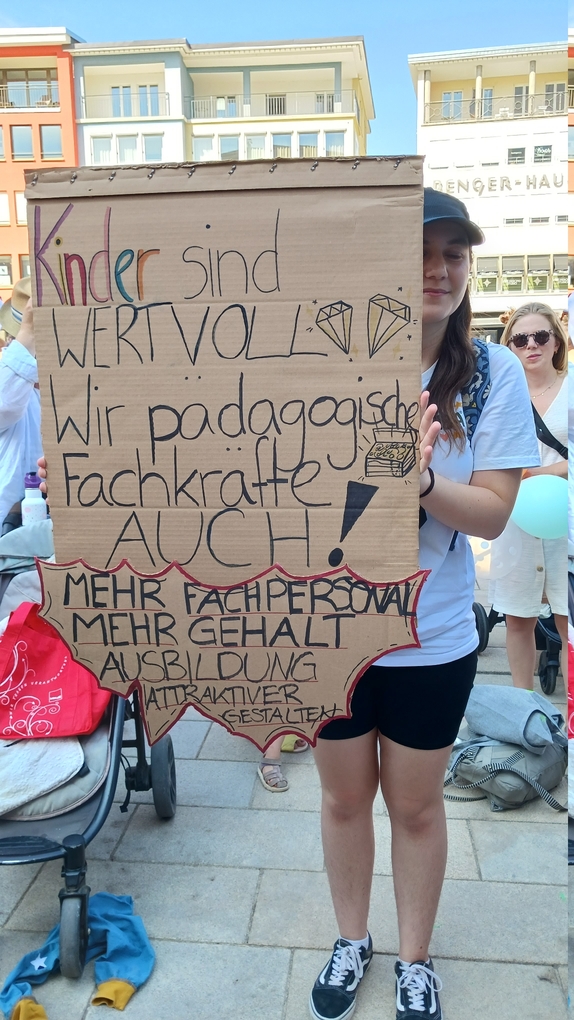 Kinder sind
WERTVOLL
Wir pädagogische
Fachkräfte
AUCH!
MEHR FACHPERSONAL
MEHR GEHALT
AUSBILDUNG
ATTRAKTIVER
GESTALTEN
ENGER-HAU